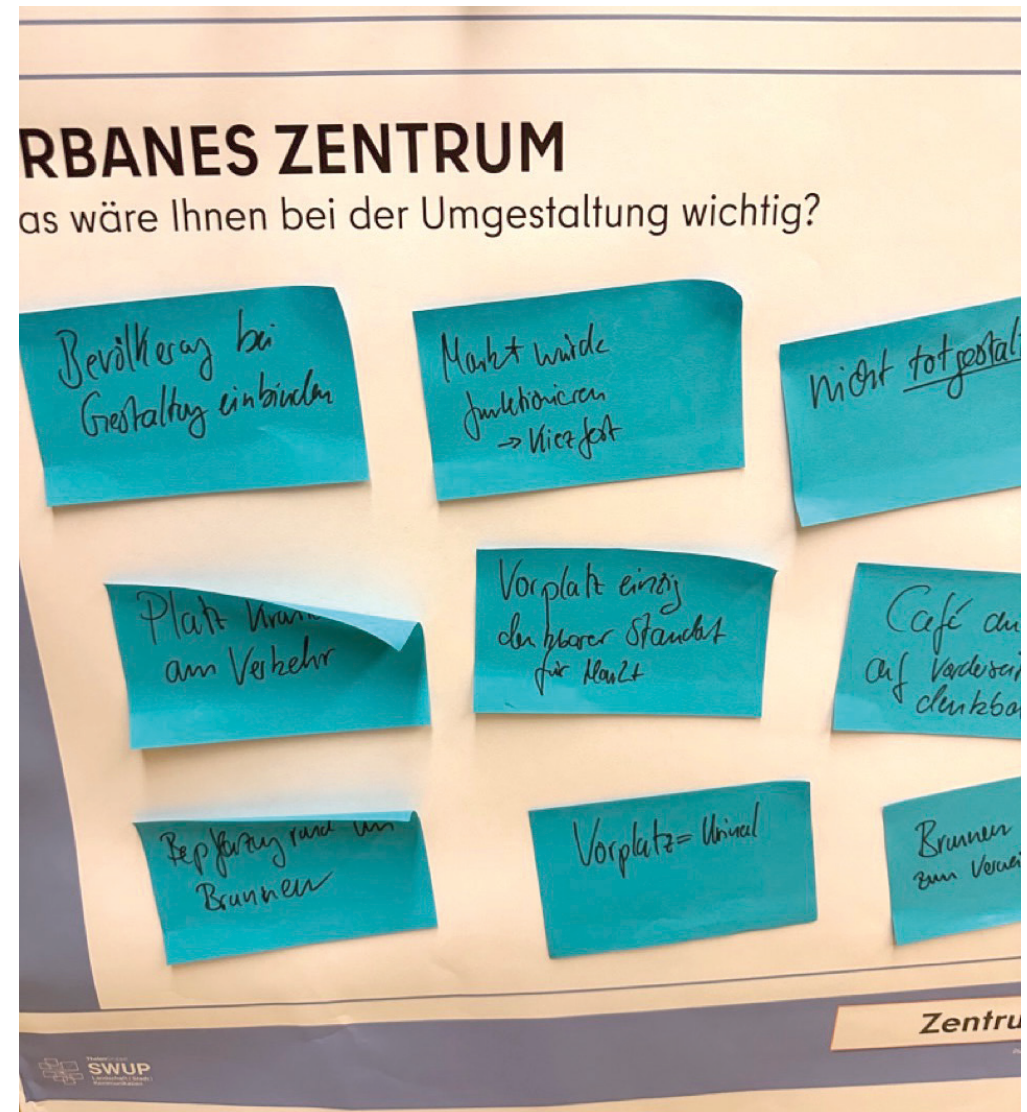 RBANES ZENTRUM
as wäre Ihnen bei der Umgestaltung wichtig?
Bevölkerung bei
Gestaltung einbinden
Markt würde
funktionieren
→ Kiezfest
nicht totgestalt
Platz
am Verkehr
Vorplatz einzig
denkbarer Standort
für Markt
Café
auf Vorderseit
denkbar
Bepflanzung rund um
Brunnen
Vorplatz = Urinal
Brunnen
zum Verwei
Zentru
SWUP
Landschaft | Stadt |
Kommunikation